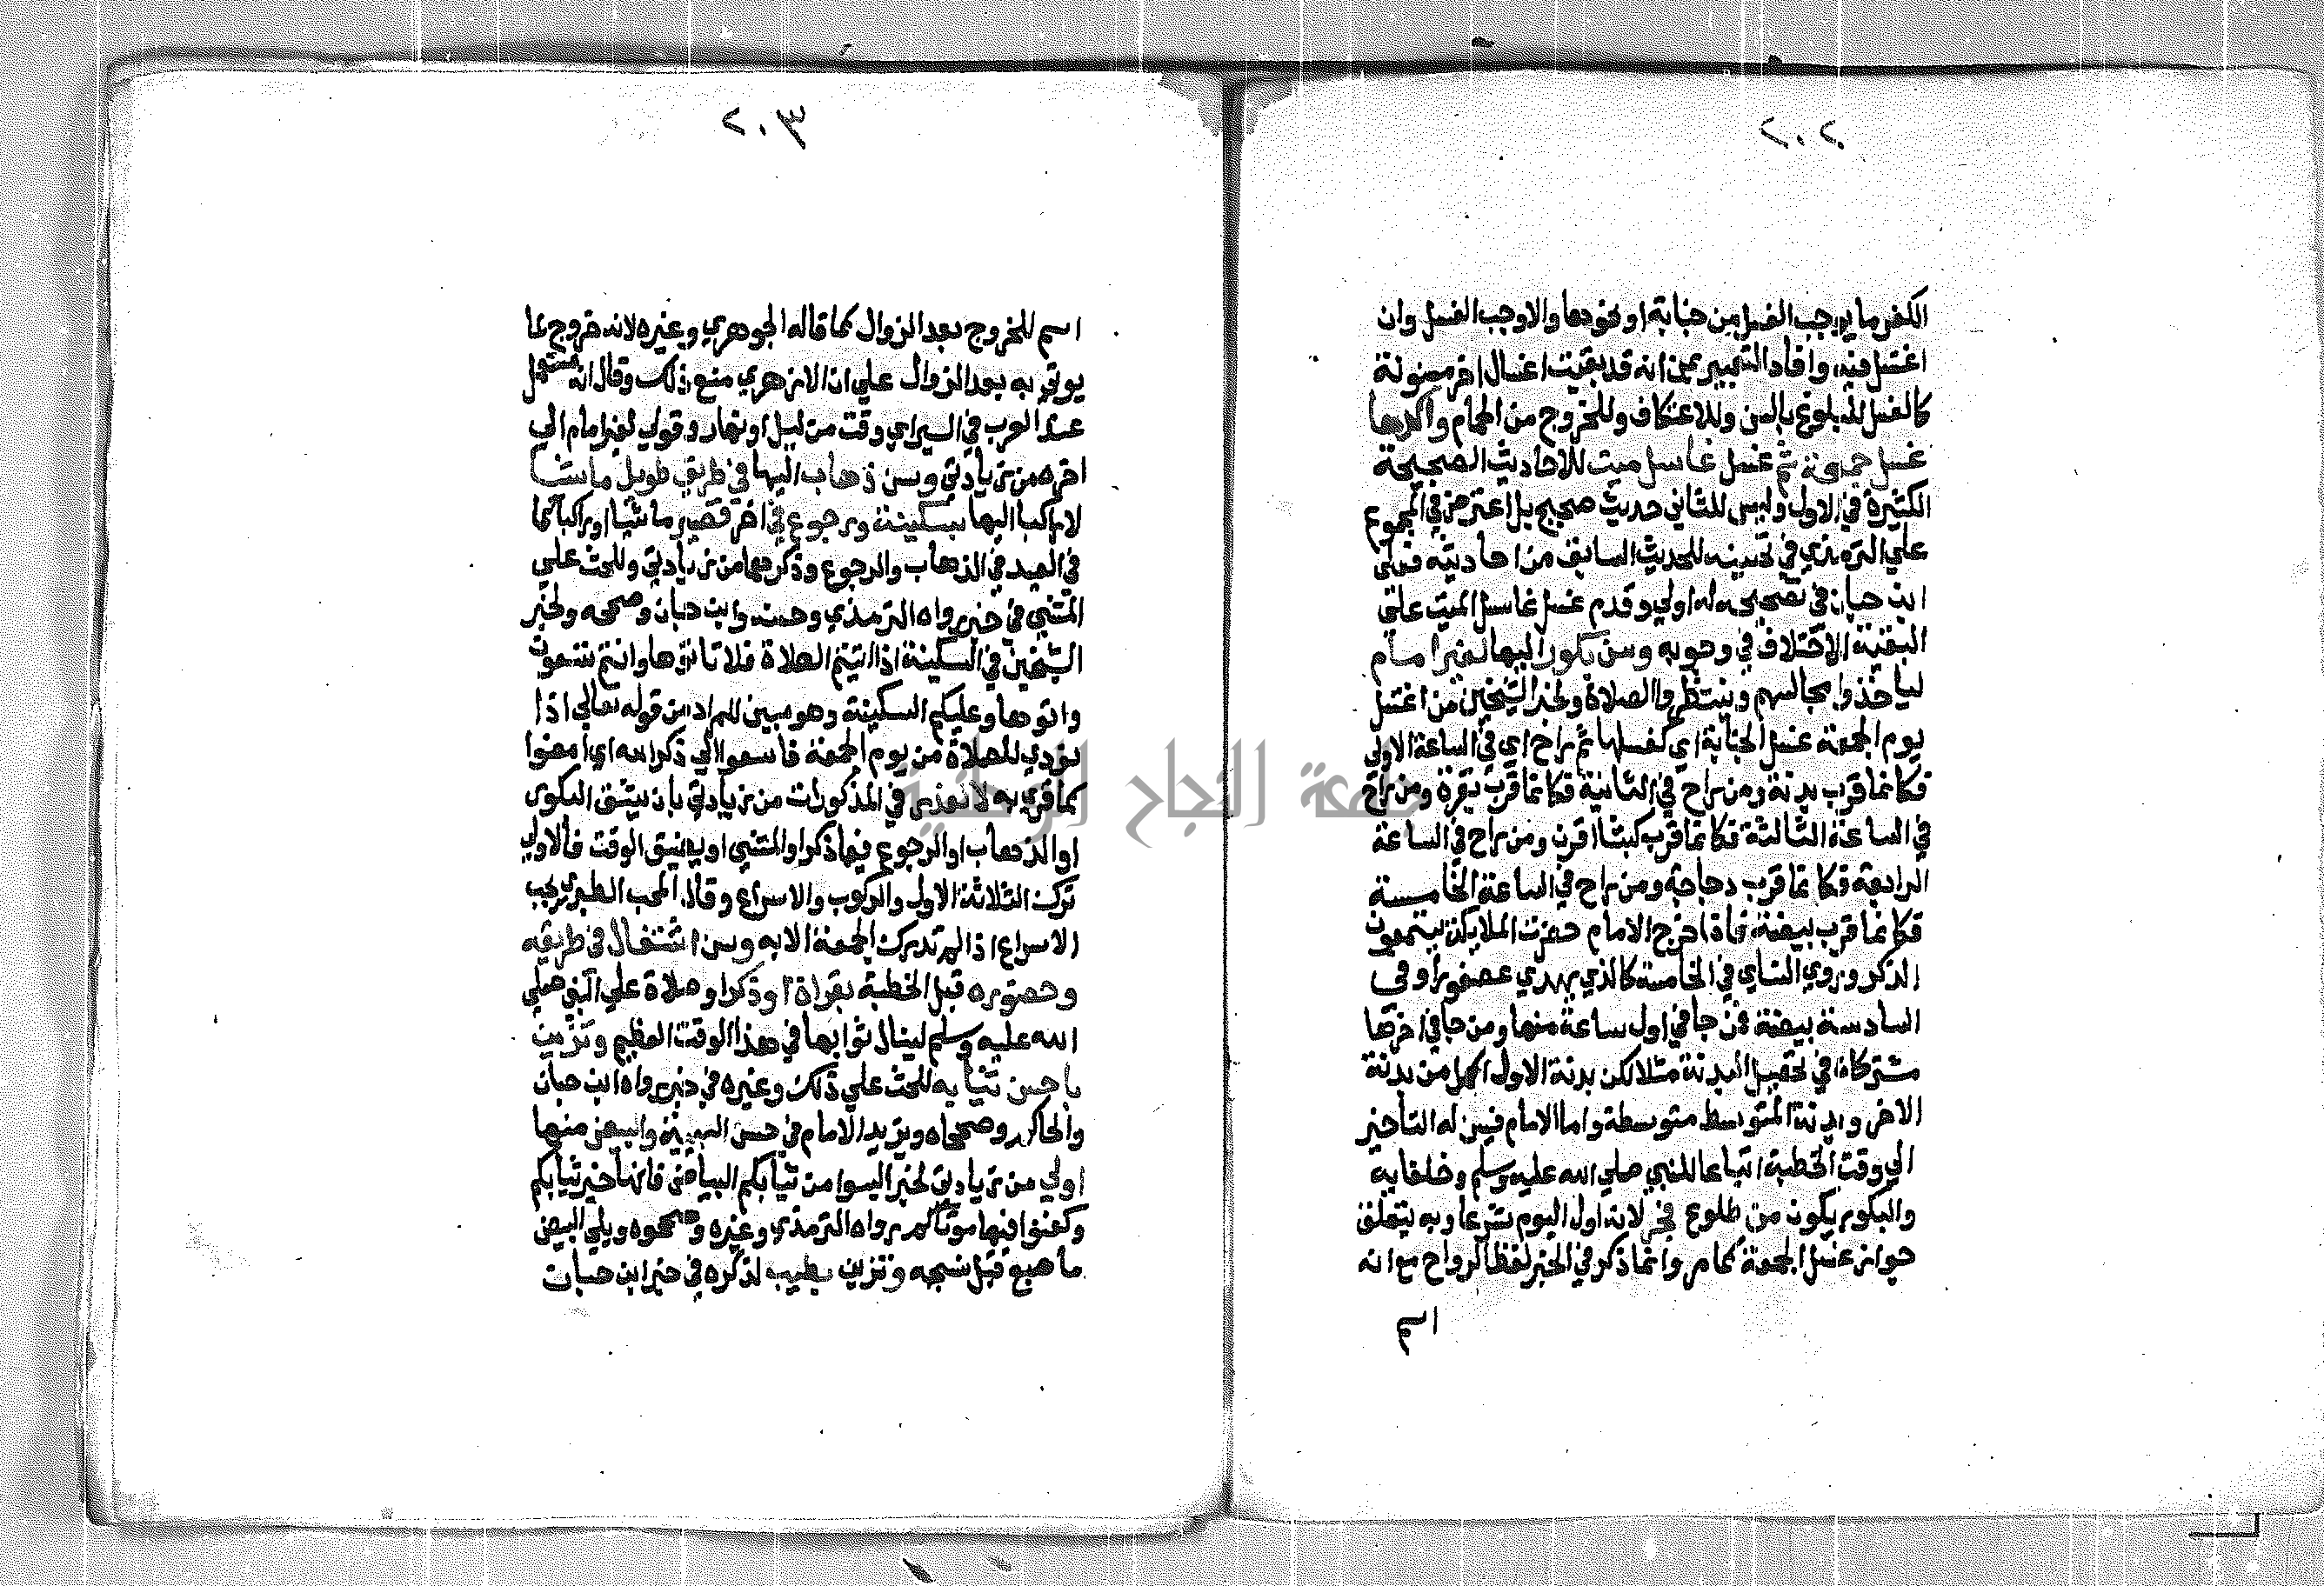 ٢٠٢
الكفر ما يوجب الغسل من جنابة او نحوها والا وجب الغسل وان
اغتسل فيه وافاد التعبير بمن انه قد بقيت اغسال اخر مسنونة
كالغسل للبلوغ بالسن وللاعتكاف وللخروج من الحمام واكدها
غسل جمعة ثم غسل غاسل ميت للاحاديث الصحيحة
الكثيرة في الاول وليس للثاني حديث صحيح بل اعترض في المجموع
علي الترمذي في تحسينه للحديث السابق من احاديثه فعلى
ابن حبان في تصحيحه له اولي وقدم غسل غاسل الميت على
البقية للاختلاف في وجوبه وسن بكور اليها لغير امام
لياخذوا مجالسهم وينتظروا الصلاة ولخبر الشيخين من اغتسل
يوم الجمعة غسل الجنابة اي كغسلها ثم راح اي في الساعة الاولي
فكانما قرب بدنة ومن راح في الثانية فكانما قرب بقرة ومن راح
في الساعة الثالثة فكانما قرب كبشا اقرن ومن راح في الساعة
الرابعة فكانما قرب دجاجة ومن راح في الساعة الخامسة
فكانما قرب بيضة فاذا خرج الامام حضرت الملايكة يستمعون
الذكر وروي النساي في الخامسة كالذي يهدي عصفورا وفي
السادسة بيضة فمن جا في اول ساعة منها ومن جا في اخرها
مشتركان في تحصيل البدنة مثلا لكن بدنة الاول اكمل من بدنة
الاخر وبدنة المتوسط متوسطة واما الامام فيسن له التاخير
الي وقت الخطبة اتباعا للنبي صلي الله عليه وسلم وخلفايه
والبكور يكون من طلوع فجر لانه اول اليوم شرعا وبه يتعلق
جواز غسل الجمعة كما مر وانما ذكر في الخبر لفظ الرواح مع انه
اسم
٢٠٣
اسم للخروج بعد الزوال كما قاله الجوهري وغيره لانه خروج لما
يوتي به بعد الزوال علي ان الازهري منع ذلك وقال انه مستعمل
عند العرب في السير اي وقت من ليل او نهار وقولي لغير امام الي
اخره من زيادتي وسن ذهاب اليها في طريق طويل ماشيا
لا راكبا اليها بسكينة ورجوع في اخر قصير ماشيا او راكبا كما
في العيد في الذهاب والرجوع وذكرهما من زيادتي وللحث علي
المشي في خبر رواه الترمذي وحسنه وابن حبان وصححه ولخبر
الشيخين في السكينة اذا اتيتم الصلاة فلا تاتوها وانتم تسعون
واتوها وعليكم السكينة وهو مبين للمراد من قوله تعالي اذا
نودي للصلاة من يوم الجمعة فاسعوا الي ذكر الله اي امضوا
كما قري به لا لعذر في المذكورات من زيادتي بان يشق البكور
او الذهاب او الرجوع فيما ذكر او المشي او يضيق الوقت فالاولي
ترك الثلاثة الاول والركوب والاسراع وقال المحب الطبري يجب
الاسراع اذا لم تدرك الجمعة الا به وسن اشتغال في طريقه
وحضوره قبل الخطبة بقراة او ذكر او صلاة علي النبي صلي
الله عليه وسلم لينال ثوابها في هذا الوقت العظيم وتزين
باحسن ثيابه للحث علي ذلك وغيره في خبر رواه ابن حبان
والحاكم وصححاه ويزيد الامام في حسن الهيئة والبيض منها
اولي من زيادتي لخبر البسوا من ثيابكم البياض فانها خير ثيابكم
وكفنوا فيها موتاكم رواه الترمذي وغيره وصححوه ويلي البيض
ما صبغ قبل نسجه وتزين بطيب لذكره في خبر ابن حبان
جامعة النجاح الوطنية